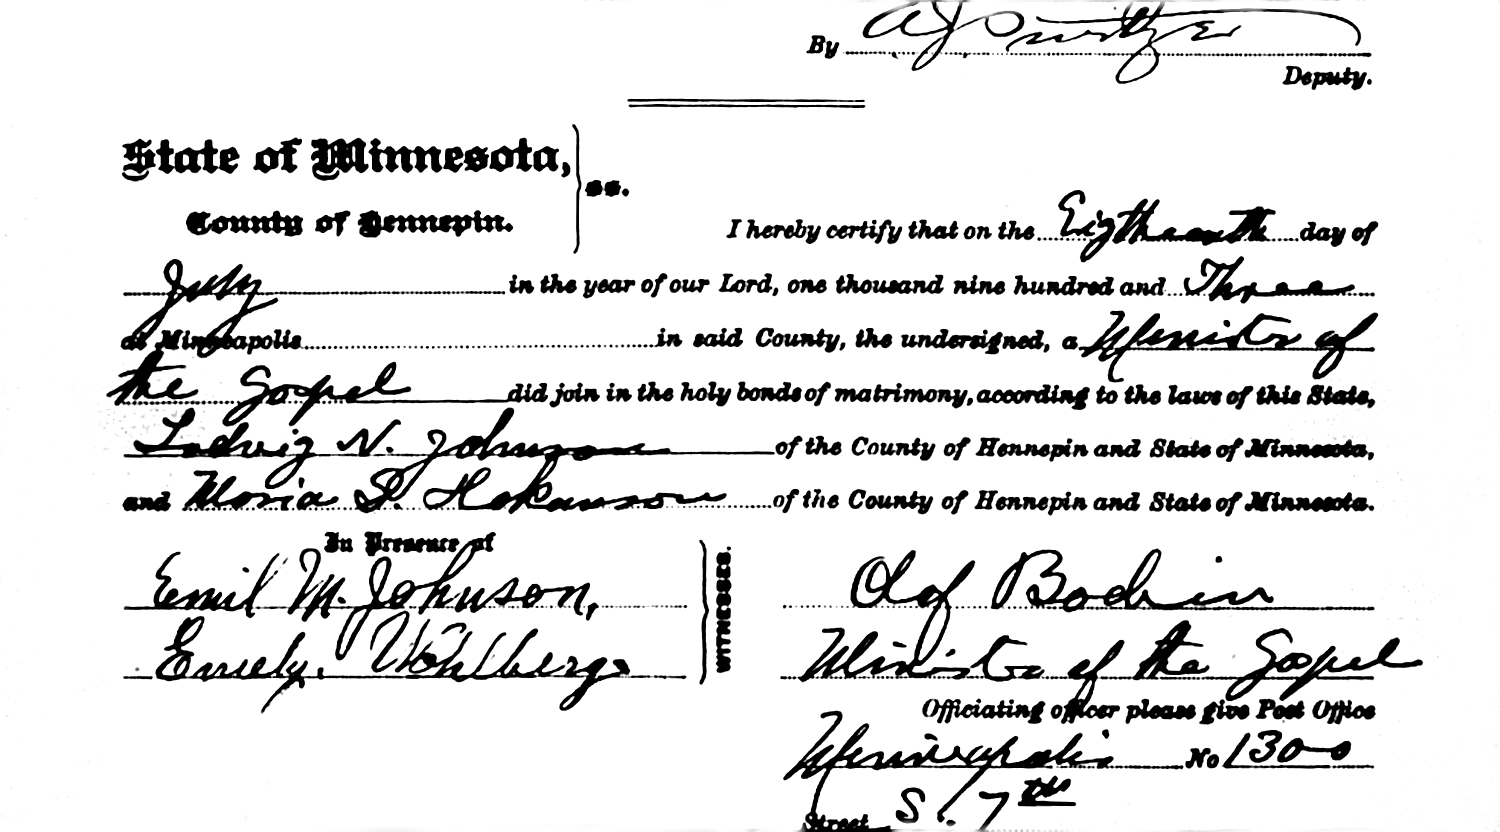 By
Deputy.
State of Minnesota,
ss.
County of Hennepin.
I hereby certify that on the Eigtheenth day of
July in the year of our Lord, one thousand nine hundred and Three
at Minneapolis in said County, the undersigned, a Minister of
the Gospel did join in the holy bonds of matrimony, according to the laws of this State,
Ludvig N. Johnson of the County of Hennepin and State of Minnesota,
and Maria S. Hokanson of the County of Hennepin and State of Minnesota.
In Presence of
Emil M. Johnson,
Emely. Wohlberg.
WITNESSES.
Olof Bodin
Minister of the Gospel
Officiating officer please give Post Office
Minneapolis No 1300
Street S. 7th